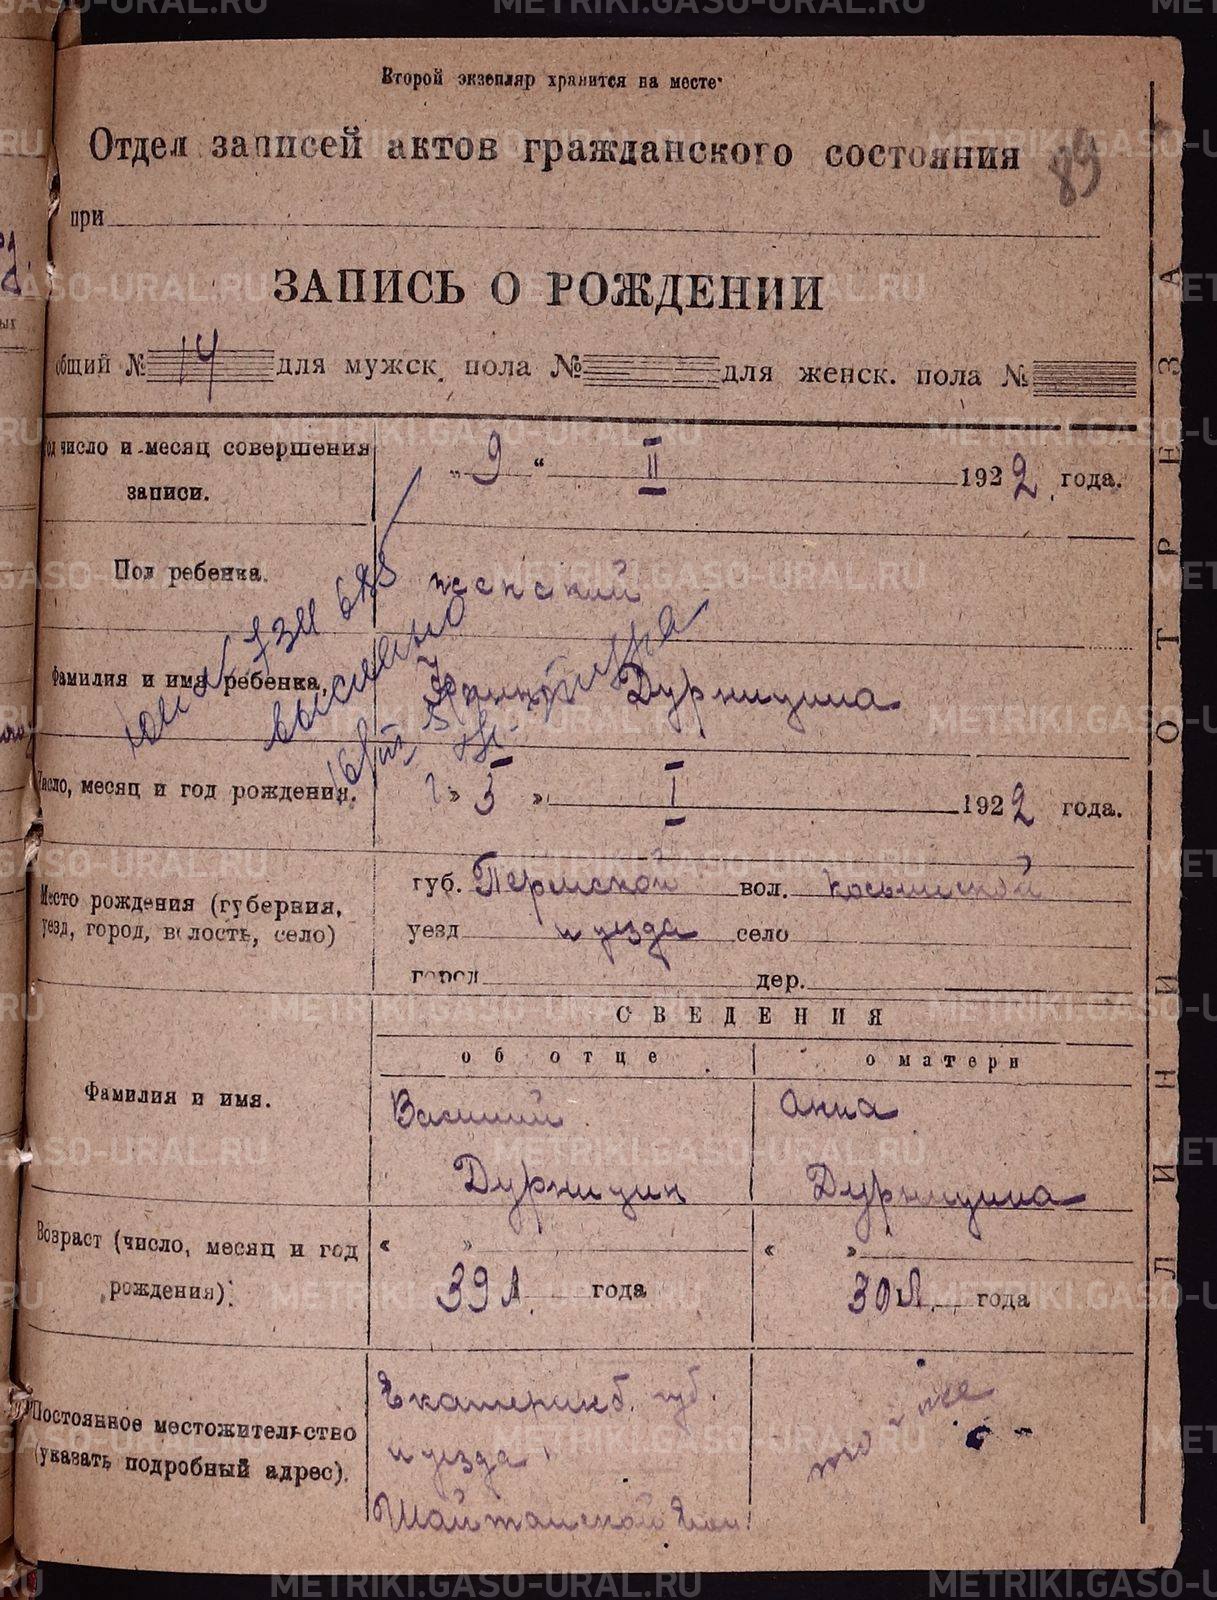 Второй экземпляр хранится на месте
89
Отдел записей актов гражданского состояния
при
ЗАПИСЬ О РОЖДЕНИИ
общий № 14 для мужск. пола № для женск. пола №
Год число и месяц совершения записи.
„ 9 “ II 1922 года.
Пол ребенка.
женский
Фамилия и имя ребенка.
Дурницина
выслано
Число, месяц и год рождения.
» 5 » I 1922 года.
Место рождения (губерния, уезд, город, волость, село)
губ. Пермской вол.
уезд и уезда село
город дер.
СВЕДЕНИЯ
об отце о матери
Фамилия и имя.
Василий Анна
Дурницин Дурницина
Возраст (число, месяц и год рождения).
« » « »
39 л. года 30 л. года
Постоянное местожительство (указать подробный адрес).
Екатеринб. губ. то же
и уезда
Шайтанской
ЛИНИЯ ОТРЕЗА
METRIKI.GASO-URAL.RU